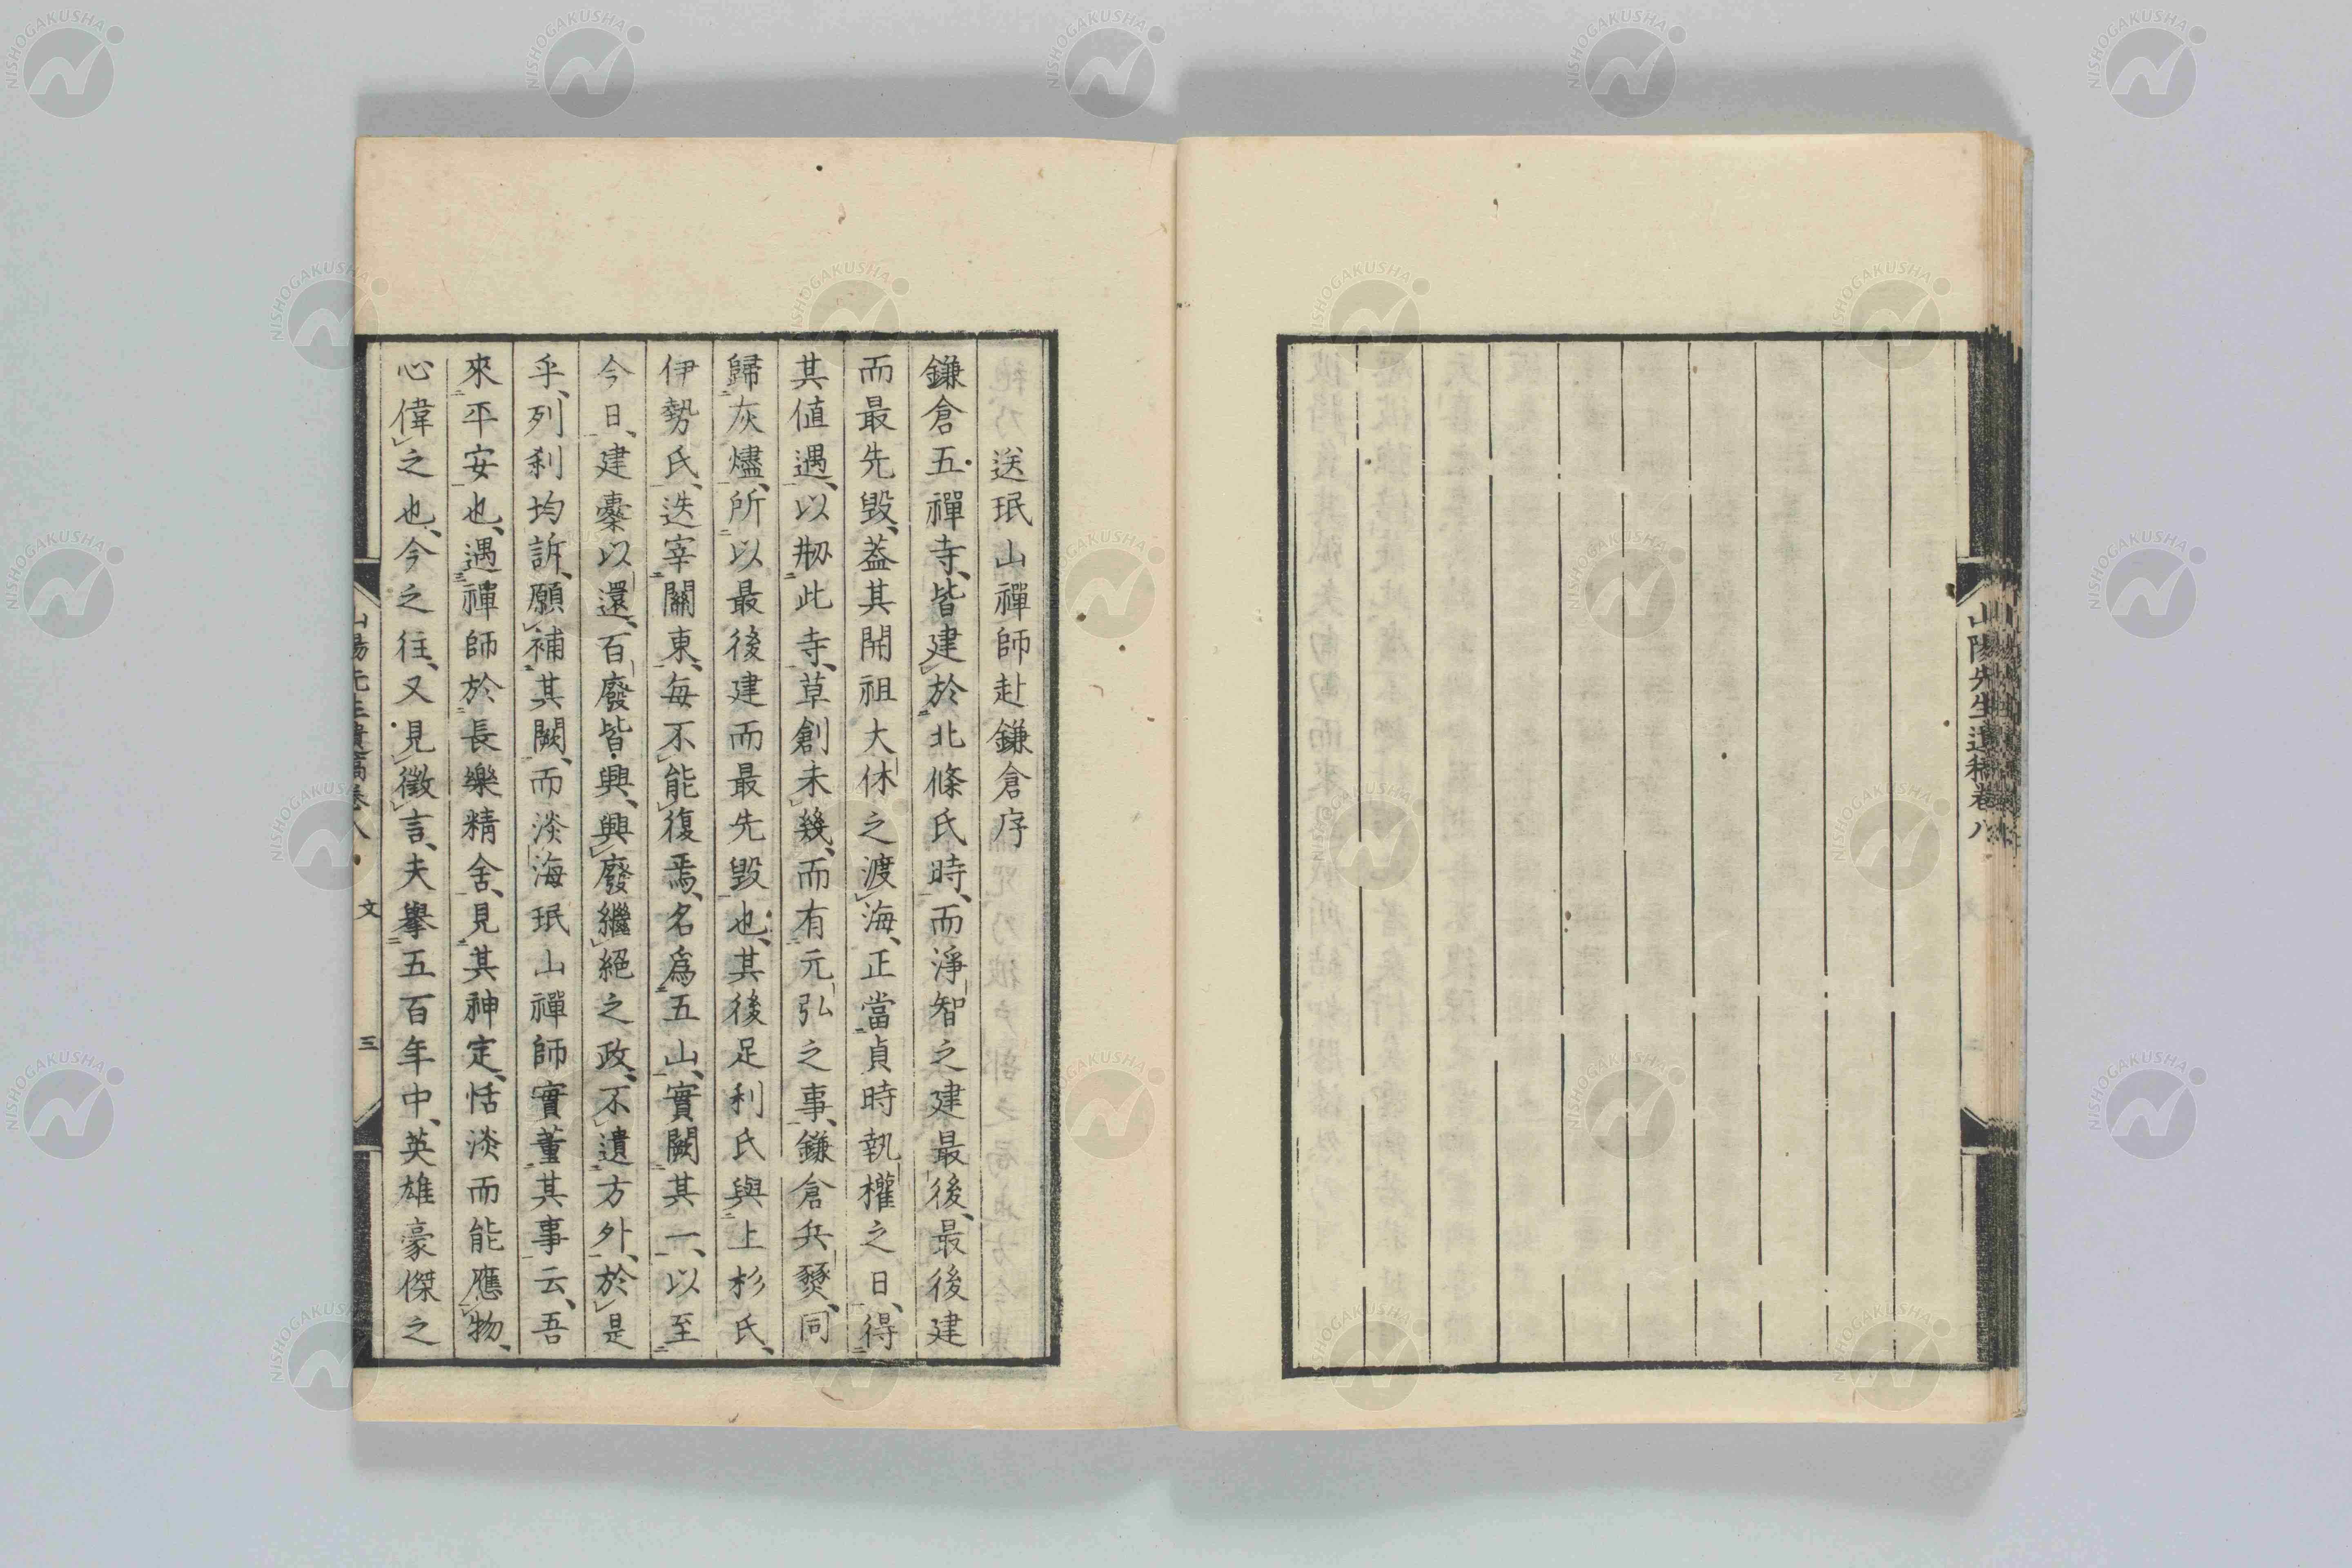 山陽先生遺稿卷八
送珉山禪師赴鎌倉序
鎌倉五禪寺、皆建於北條氏時、而淨智之建最後、最後建
而最先毀、蓋其開祖大休之渡海、正當貞時執權之日、得
其値遇、以刱此寺、草創未幾、而有元弘之事、鎌倉兵燹、同
歸灰燼、所以最後建而最先毀也、其後足利氏與上杉氏、
伊勢氏、迭宰關東、每不能復焉、名爲五山、實闕其一、以至
今日、建櫜以還、百廢皆興、興廢繼絕之政、不遺方外、於是
乎、列刹均訴、願補其闕、而淡海珉山禪師實董其事云、吾
來平安也、遇禪師於長樂精舍、見其神定、恬淡而能應物、
心偉之也、今之往、又見徵言、夫擧五百年中、英雄豪傑之
山陽先生遺稿卷八 文 三